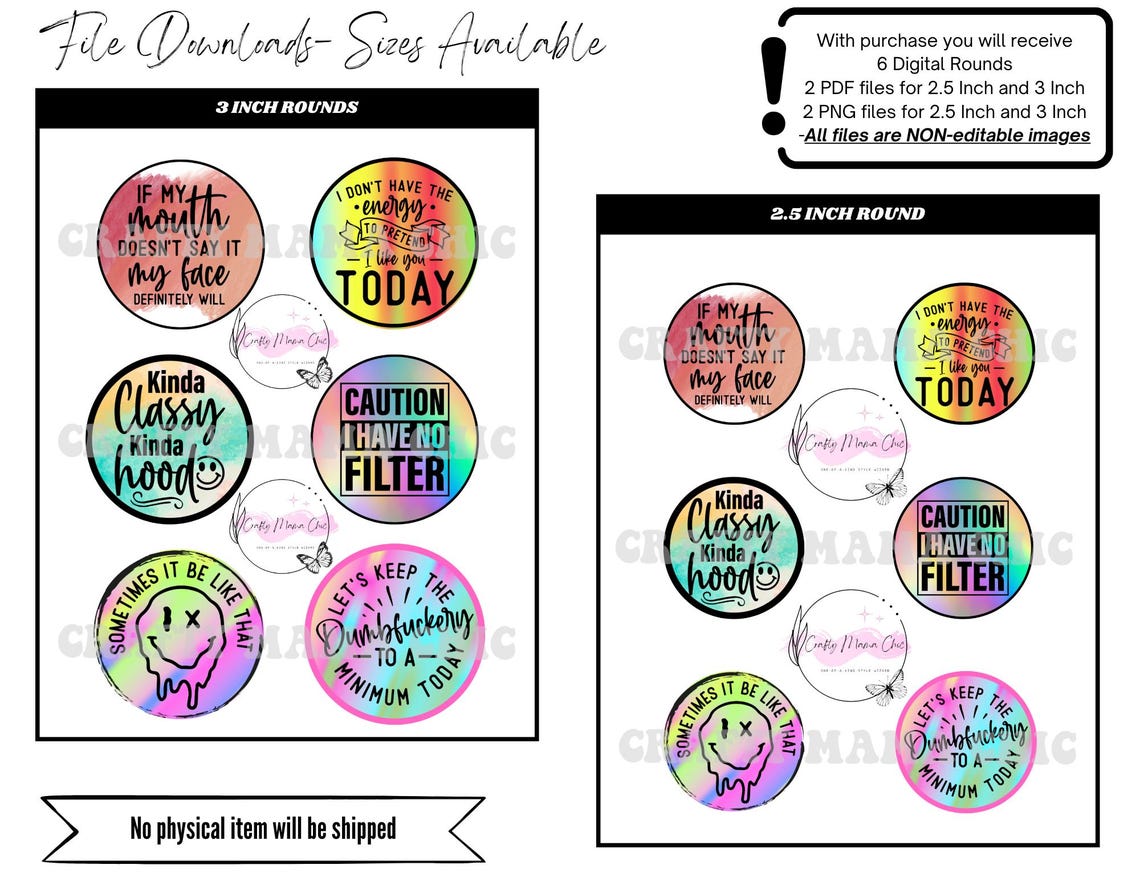 File Downloads- Sizes Available
With purchase you will receive
6 Digital Rounds
2 PDF files for 2.5 Inch and 3 Inch
2 PNG files for 2.5 Inch and 3 Inch
-All files are NON-editable images
3 INCH ROUNDS
IF MY
mouth
DOESN'T SAY IT
my face
DEFINITELY WILL
I DON'T HAVE THE
energy
TO PRETEND
I like you
TODAY
CRAFTY MAMA CHIC
Crafty Mama Chic
ONE-OF-A-KIND STYLE WISDOM
Kinda
Classy
Kinda
hood
CAUTION
I HAVE NO
FILTER
CRAFTY MAMA CHIC
Crafty Mama Chic
ONE-OF-A-KIND STYLE WISDOM
SOMETIMES IT BE LIKE THAT
LET'S KEEP THE
Dumbfuckery
TO A
MINIMUM TODAY
CRAFTY MAMA CHIC
2.5 INCH ROUND
IF MY
mouth
DOESN'T SAY IT
my face
DEFINITELY WILL
I DON'T HAVE THE
energy
TO PRETEND
I like you
TODAY
CRAFTY MAMA CHIC
Crafty Mama Chic
ONE-OF-A-KIND STYLE WISDOM
Kinda
Classy
Kinda
hood
CAUTION
I HAVE NO
FILTER
CRAFTY MAMA CHIC
Crafty Mama Chic
ONE-OF-A-KIND STYLE WISDOM
SOMETIMES IT BE LIKE THAT
LET'S KEEP THE
Dumbfuckery
TO A
MINIMUM TODAY
CRAFTY MAMA CHIC
No physical item will be shipped